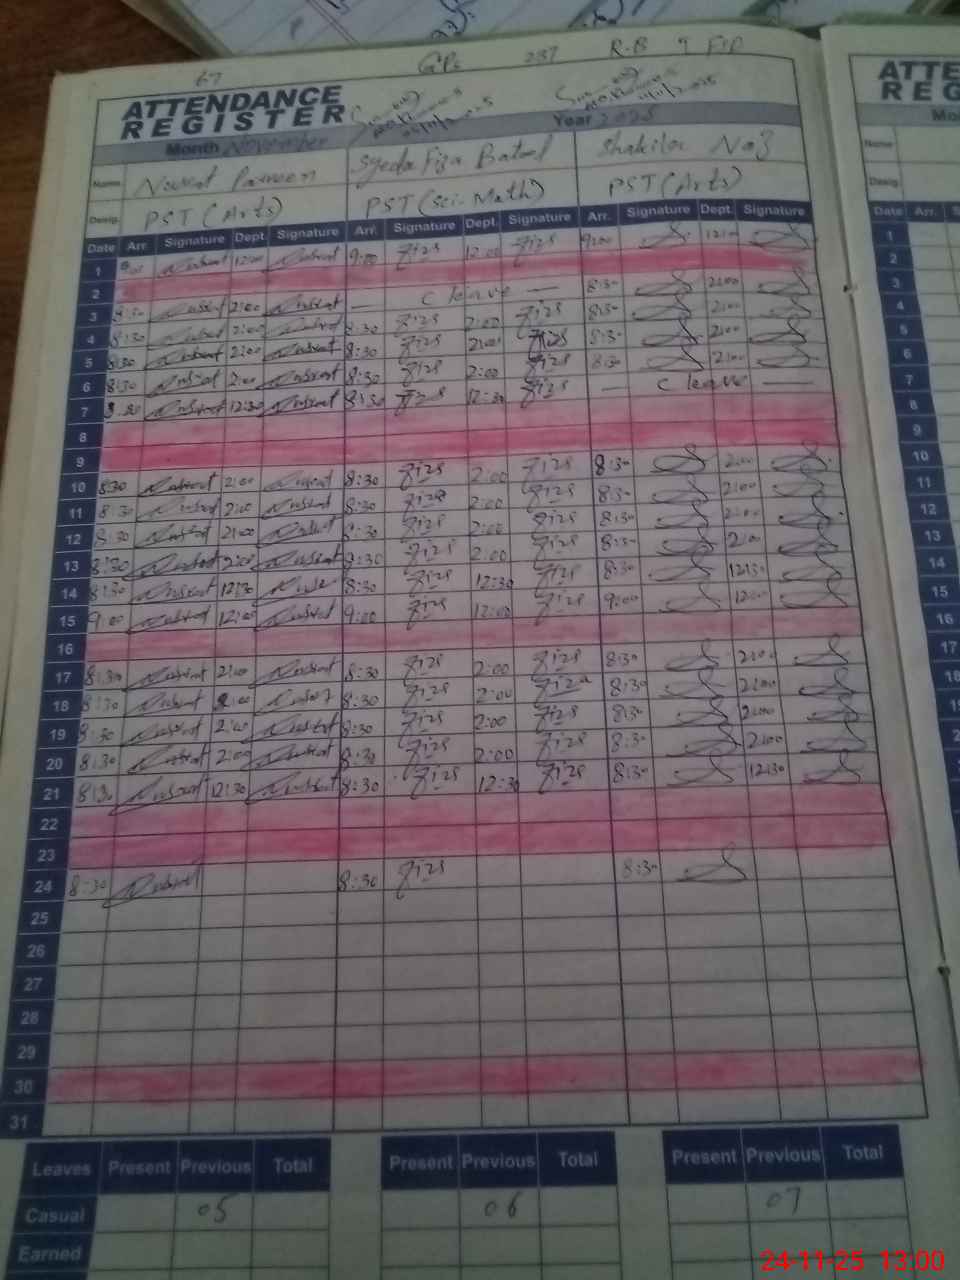 67 GPS 237 R-B 9 FSD
ATTENDANCE
REGISTER
Month November Year 2025
Name Nusrat Parveen Syeda Fiza Batool Shakila Naz
Desig. PST (Arts) PST (Sci-Math) PST (Arts)
Date Arr. Signature Dept. Signature Arr. Signature Dept. Signature Arr. Signature Dept. Signature
1 12:00 9:00 Fiza 12:00 Fiza 9:00 12:00
2
3 8:30 Nusrat 2:00 Nusrat — c leave — 8:30 2:00
4 8:30 Nusrat 2:00 Nusrat 8:30 Fiza 2:00 Fiza 8:30 2:00
5 8:30 Nusrat 2:00 Nusrat 8:30 Fiza 2:00 Fiza 8:30 2:00
6 8:30 Nusrat 2:00 Nusrat 8:30 Fiza 2:00 Fiza 8:30 2:00
7 8:30 Nusrat 12:30 Nusrat 8:30 Fiza 12:30 Fiza — c leave —
8
9
10 8:30 Nusrat 2:00 Nusrat 8:30 Fiza 2:00 Fiza 8:30 2:00
11 8:30 Nusrat 2:00 Nusrat 8:30 Fiza 2:00 Fiza 8:30 2:00
12 8:30 Nusrat 2:00 Nusrat 8:30 Fiza 2:00 Fiza 8:30 2:00
13 8:30 Nusrat 2:00 Nusrat 8:30 Fiza 2:00 Fiza 8:30 2:00
14 8:30 Nusrat 12:30 Nusrat 8:30 Fiza 12:30 Fiza 8:30 12:30
15 9:00 Nusrat 12:00 Nusrat 9:00 Fiza 12:00 Fiza 9:00 12:00
16
17 8:30 Nusrat 2:00 Nusrat 8:30 Fiza 2:00 Fiza 8:30 2:00
18 8:30 Nusrat 2:00 Nusrat 8:30 Fiza 2:00 Fiza 8:30 2:00
19 8:30 Nusrat 2:00 Nusrat 8:30 Fiza 2:00 Fiza 8:30 2:00
20 8:30 Nusrat 2:00 Nusrat 8:30 Fiza 2:00 Fiza 8:30 2:00
21 8:30 Nusrat 12:30 Nusrat 8:30 Fiza 12:30 Fiza 8:30 12:30
22
23
24 8:30 Nusrat 8:30 Fiza 8:30
25
26
27
28
29
30
31
Leaves Present Previous Total Present Previous Total Present Previous Total
Casual 05 06 07
Earned
ATTE
REG
Mo
Name
Desig.
Date Arr. S
1
2
3
4
5
6
7
8
9
10
11
12
13
14
15
16
17
18
24-11-25 13:00